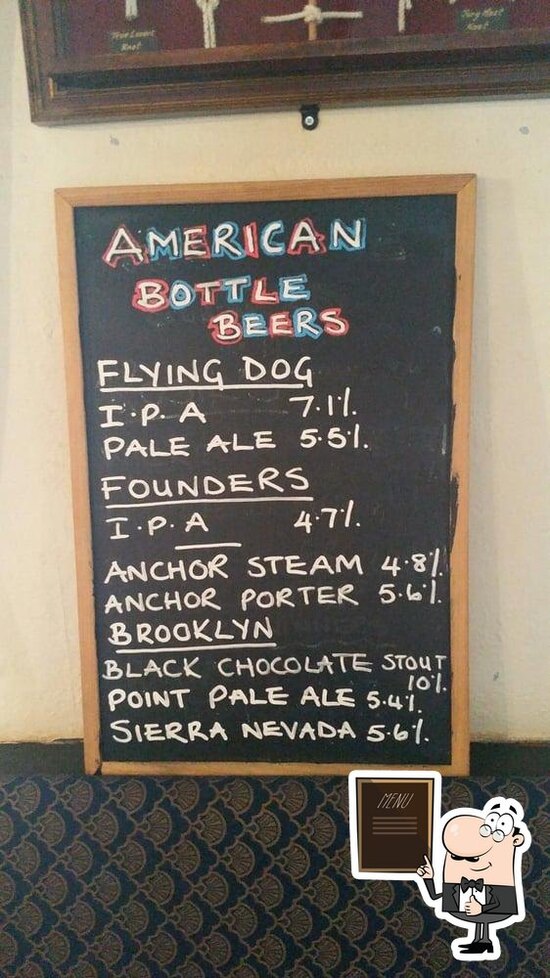 True Lovers
Knot
AMERICAN
BOTTLE
BEERS
FLYING DOG
I.P.A 7.1%.
PALE ALE 5.5%.
FOUNDERS
I.P.A 4.7%.
ANCHOR STEAM 4.8%.
ANCHOR PORTER 5.6%.
BROOKLYN
BLACK CHOCOLATE STOUT
10%.
POINT PALE ALE 5.4%.
SIERRA NEVADA 5.6%.
MENU